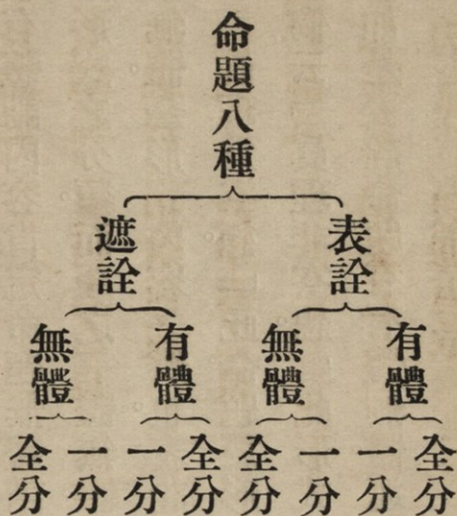 命題八種
表詮
遮詮
有體
無體
有體
無體
全分
一分
一分
全分
全分
一分
一分
全分